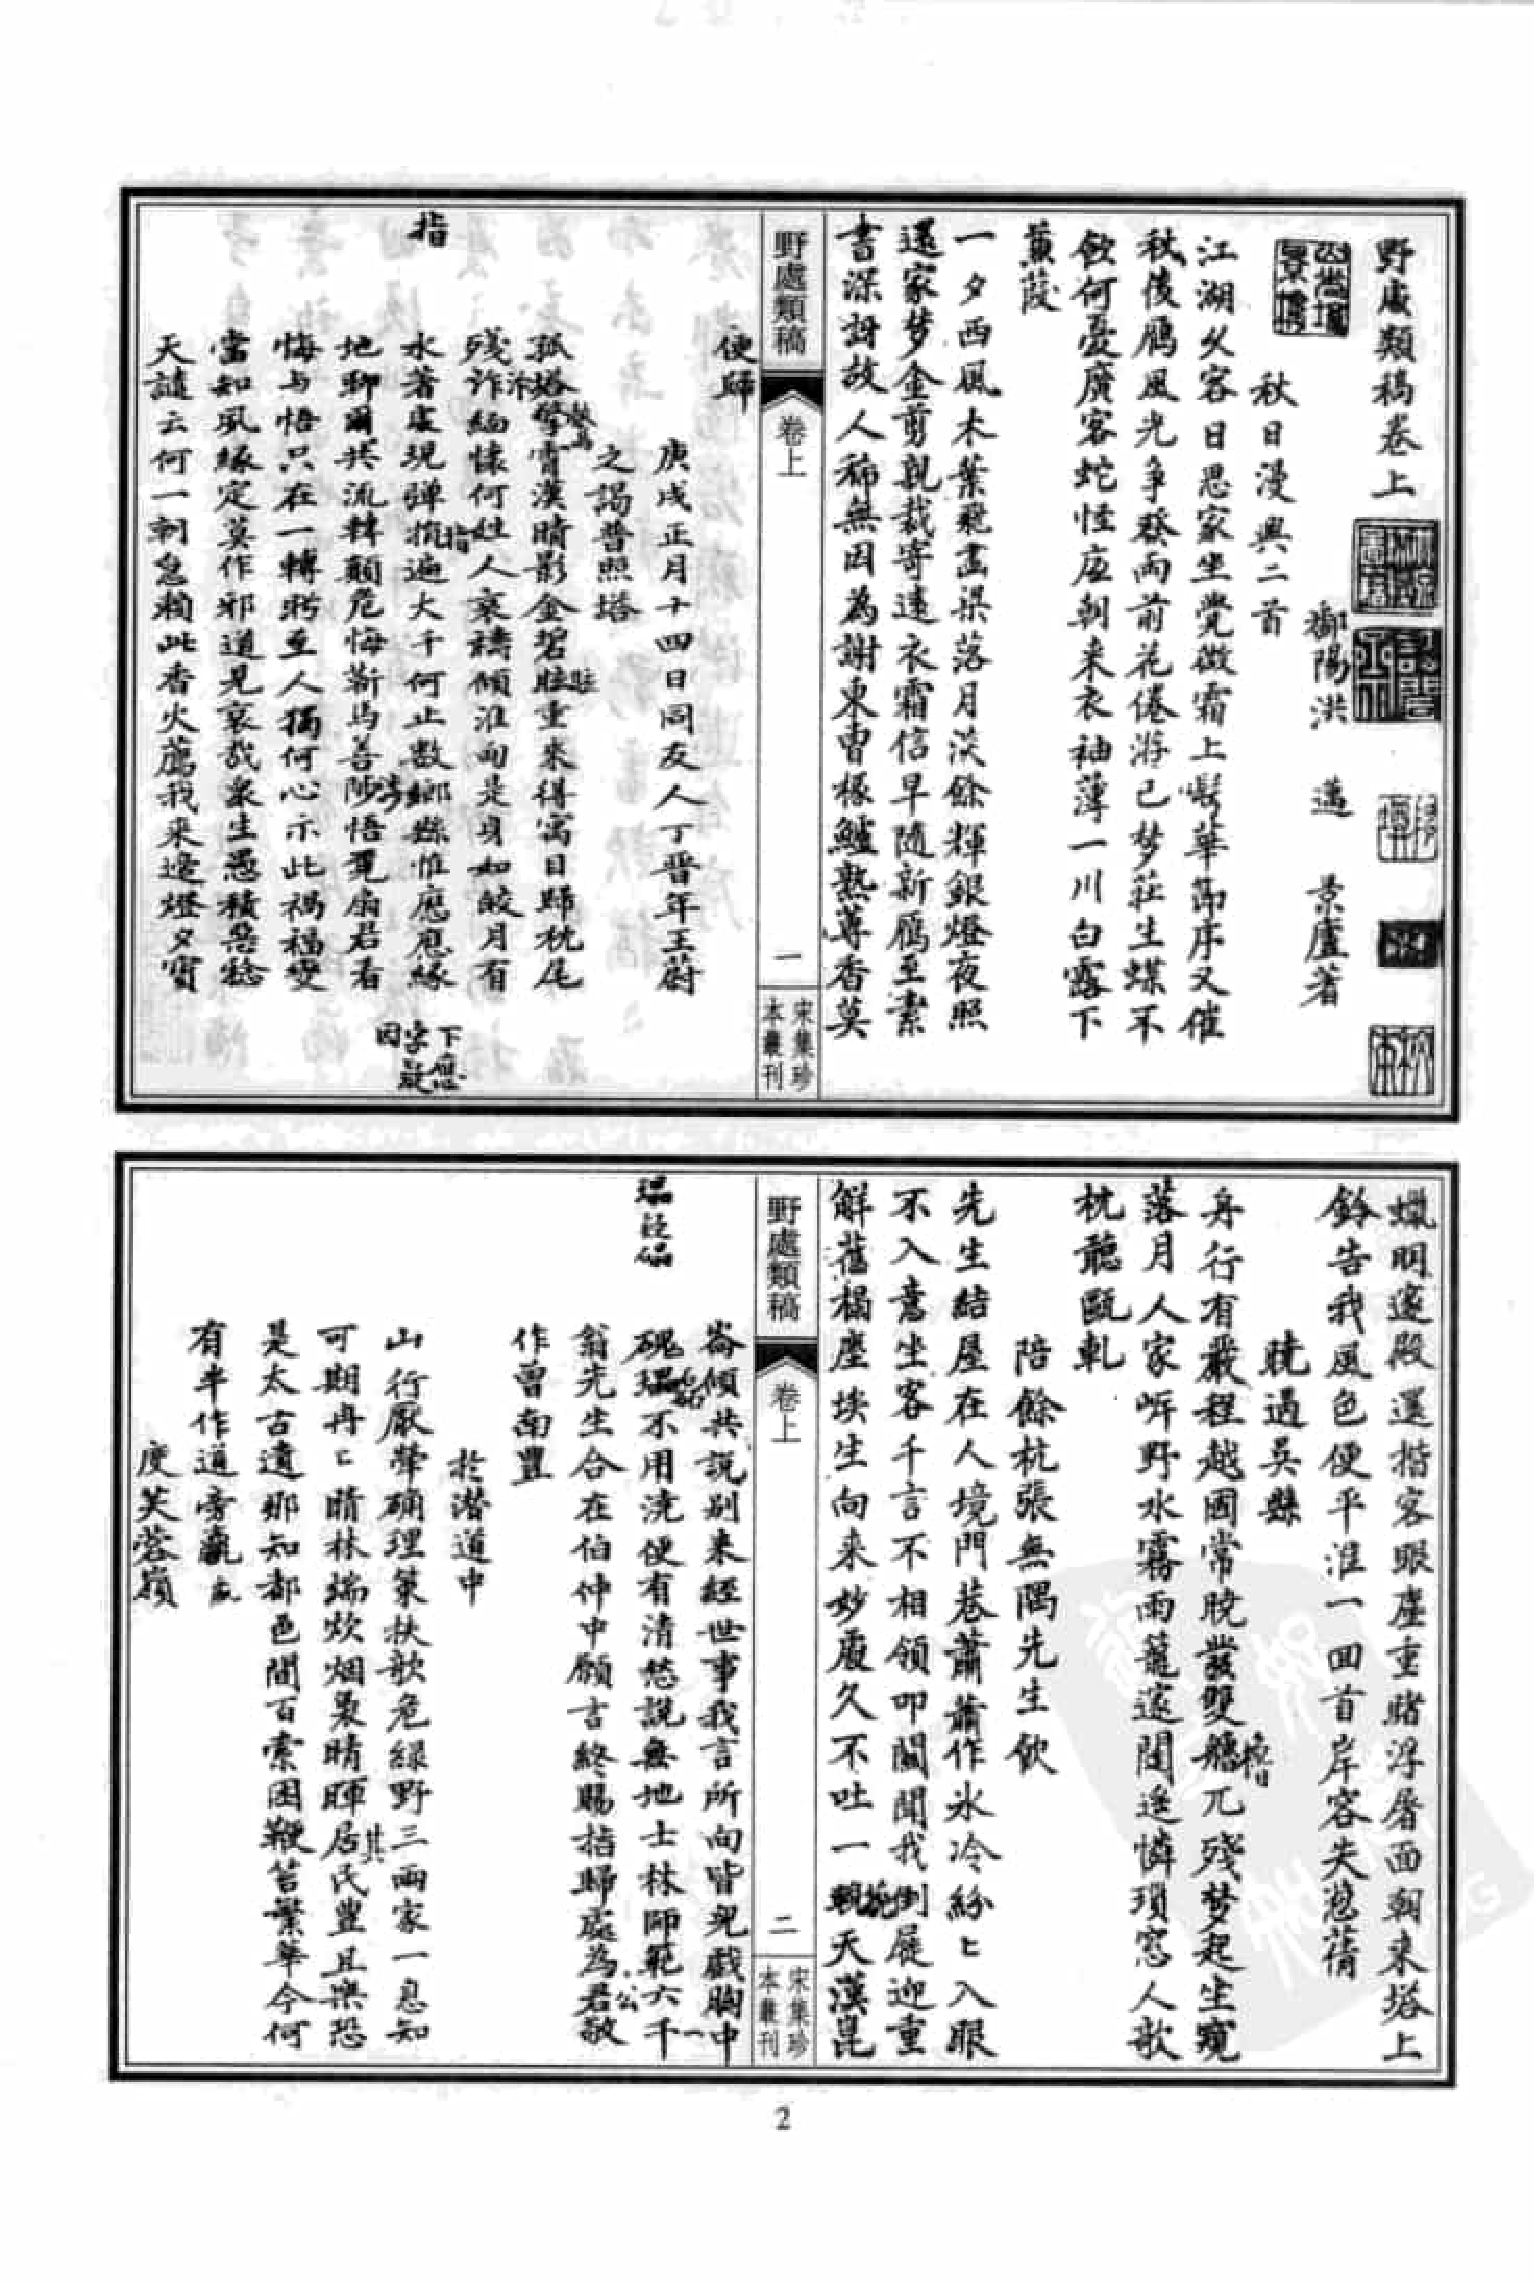 野處類稿卷上
鄱陽洪 邁 景廬著
秋日漫興二首
江湖久客日思家坐覺微霜上鬢華節序又催
秋後鴈風光爭發雨前花倦游已梦莊生蝶不
飲何憂廣客蛇怪底朝来衣袖薄一川白露下
蒹葭
一夕西風木葉飛畵梁落月淡餘輝銀燈夜照
還家梦金剪親裁寄遠衣霜信早随新鴈至素
書深訝故人稀無因為謝東曹椽鱸熟蓴香莫
野處類稿
卷上
一
宋集珍
本叢刊
便歸
庚戌正月十四日同友人丁晉年王蔚
之謁普照塔
孤塔擎霄漢晴影金碧眩重来得寓目歸枕尾
残 緬懐何姓人哀禱傾淮甸是身如皎月有
水著處現弹 遍大千何止数鄉縣惟應應縁
地聊爾共流轉顛危悔 馬善 悟 扇君看
悔与悟只在一轉眄至人獨何心示此禍福變
當知夙縁定莫作邪道見哀哉衆生愚積 稔
天譴云何一 息賴此香火薦我来逢燈夕寳
指
下應
字疑
因
蠟明邃殿還揩客眼塵重睹浮屠面朝来塔上
鈴告我風色便平淮一回首岸容失葱蒨
暁過吳縣
舟行有嚴程越國常晓發雙艣兀残梦起坐窺
落月人家呀野水霧雨蘢邃閒遥憐瑣窓人欹
枕聽鷗軋
陪餘杭張無隅先生飲
先生結屋在人境門巷蕭蕭作氷冷紛〻入眼
不入意坐客千言不相領叩閽聞我倒屣迎重
解舊榻塵埃生向来妙處久不吐一 天漢崑
野處類稿
卷上
二
宋集珍
本叢刊
崙傾共說别来經世事我言所向皆兒戯胸中
磈 不用澆便有清愁說無地士林師範六千
翁先生合在伯仲中願言終賜指歸處為君敬
作曾南豐
於潛道中
山行厭犖确理策扶欹危緑野三兩家一息知
可期冉〻晴林端炊烟裊晴暉居民豊且樂恐
是太古遺那知都邑間百索困鞭笞繁華今何
有半作道旁
度芙蓉嶺
2